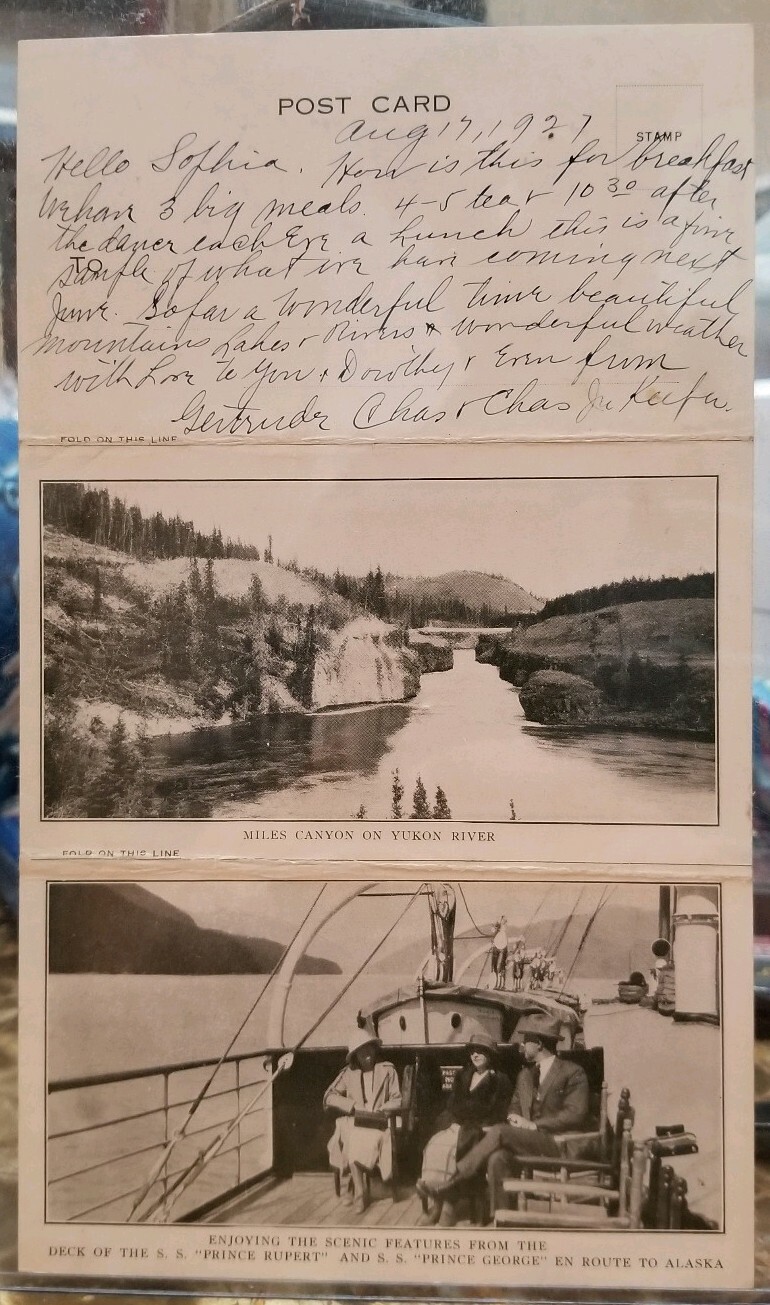 POST CARD
STAMP
Aug 17, 1927
Hello Sophia. How is this for breakfast
We have 3 big meals. 4-5 tea & 10 30 after
the dance each Eve a lunch this is a fine
TO
sample of what we have coming next
June. So far a wonderful time beautiful
mountains Lakes & Rivers & wonderful weather
with Love to You & Dorothy & Even from
Gertrude Chas & Chas Jr
FOLD ON THIS LINE
MILES CANYON ON YUKON RIVER
FOLD ON THIS LINE
ENJOYING THE SCENIC FEATURES FROM THE
DECK OF THE S. S. "PRINCE RUPERT" AND S. S. "PRINCE GEORGE" EN ROUTE TO ALASKA